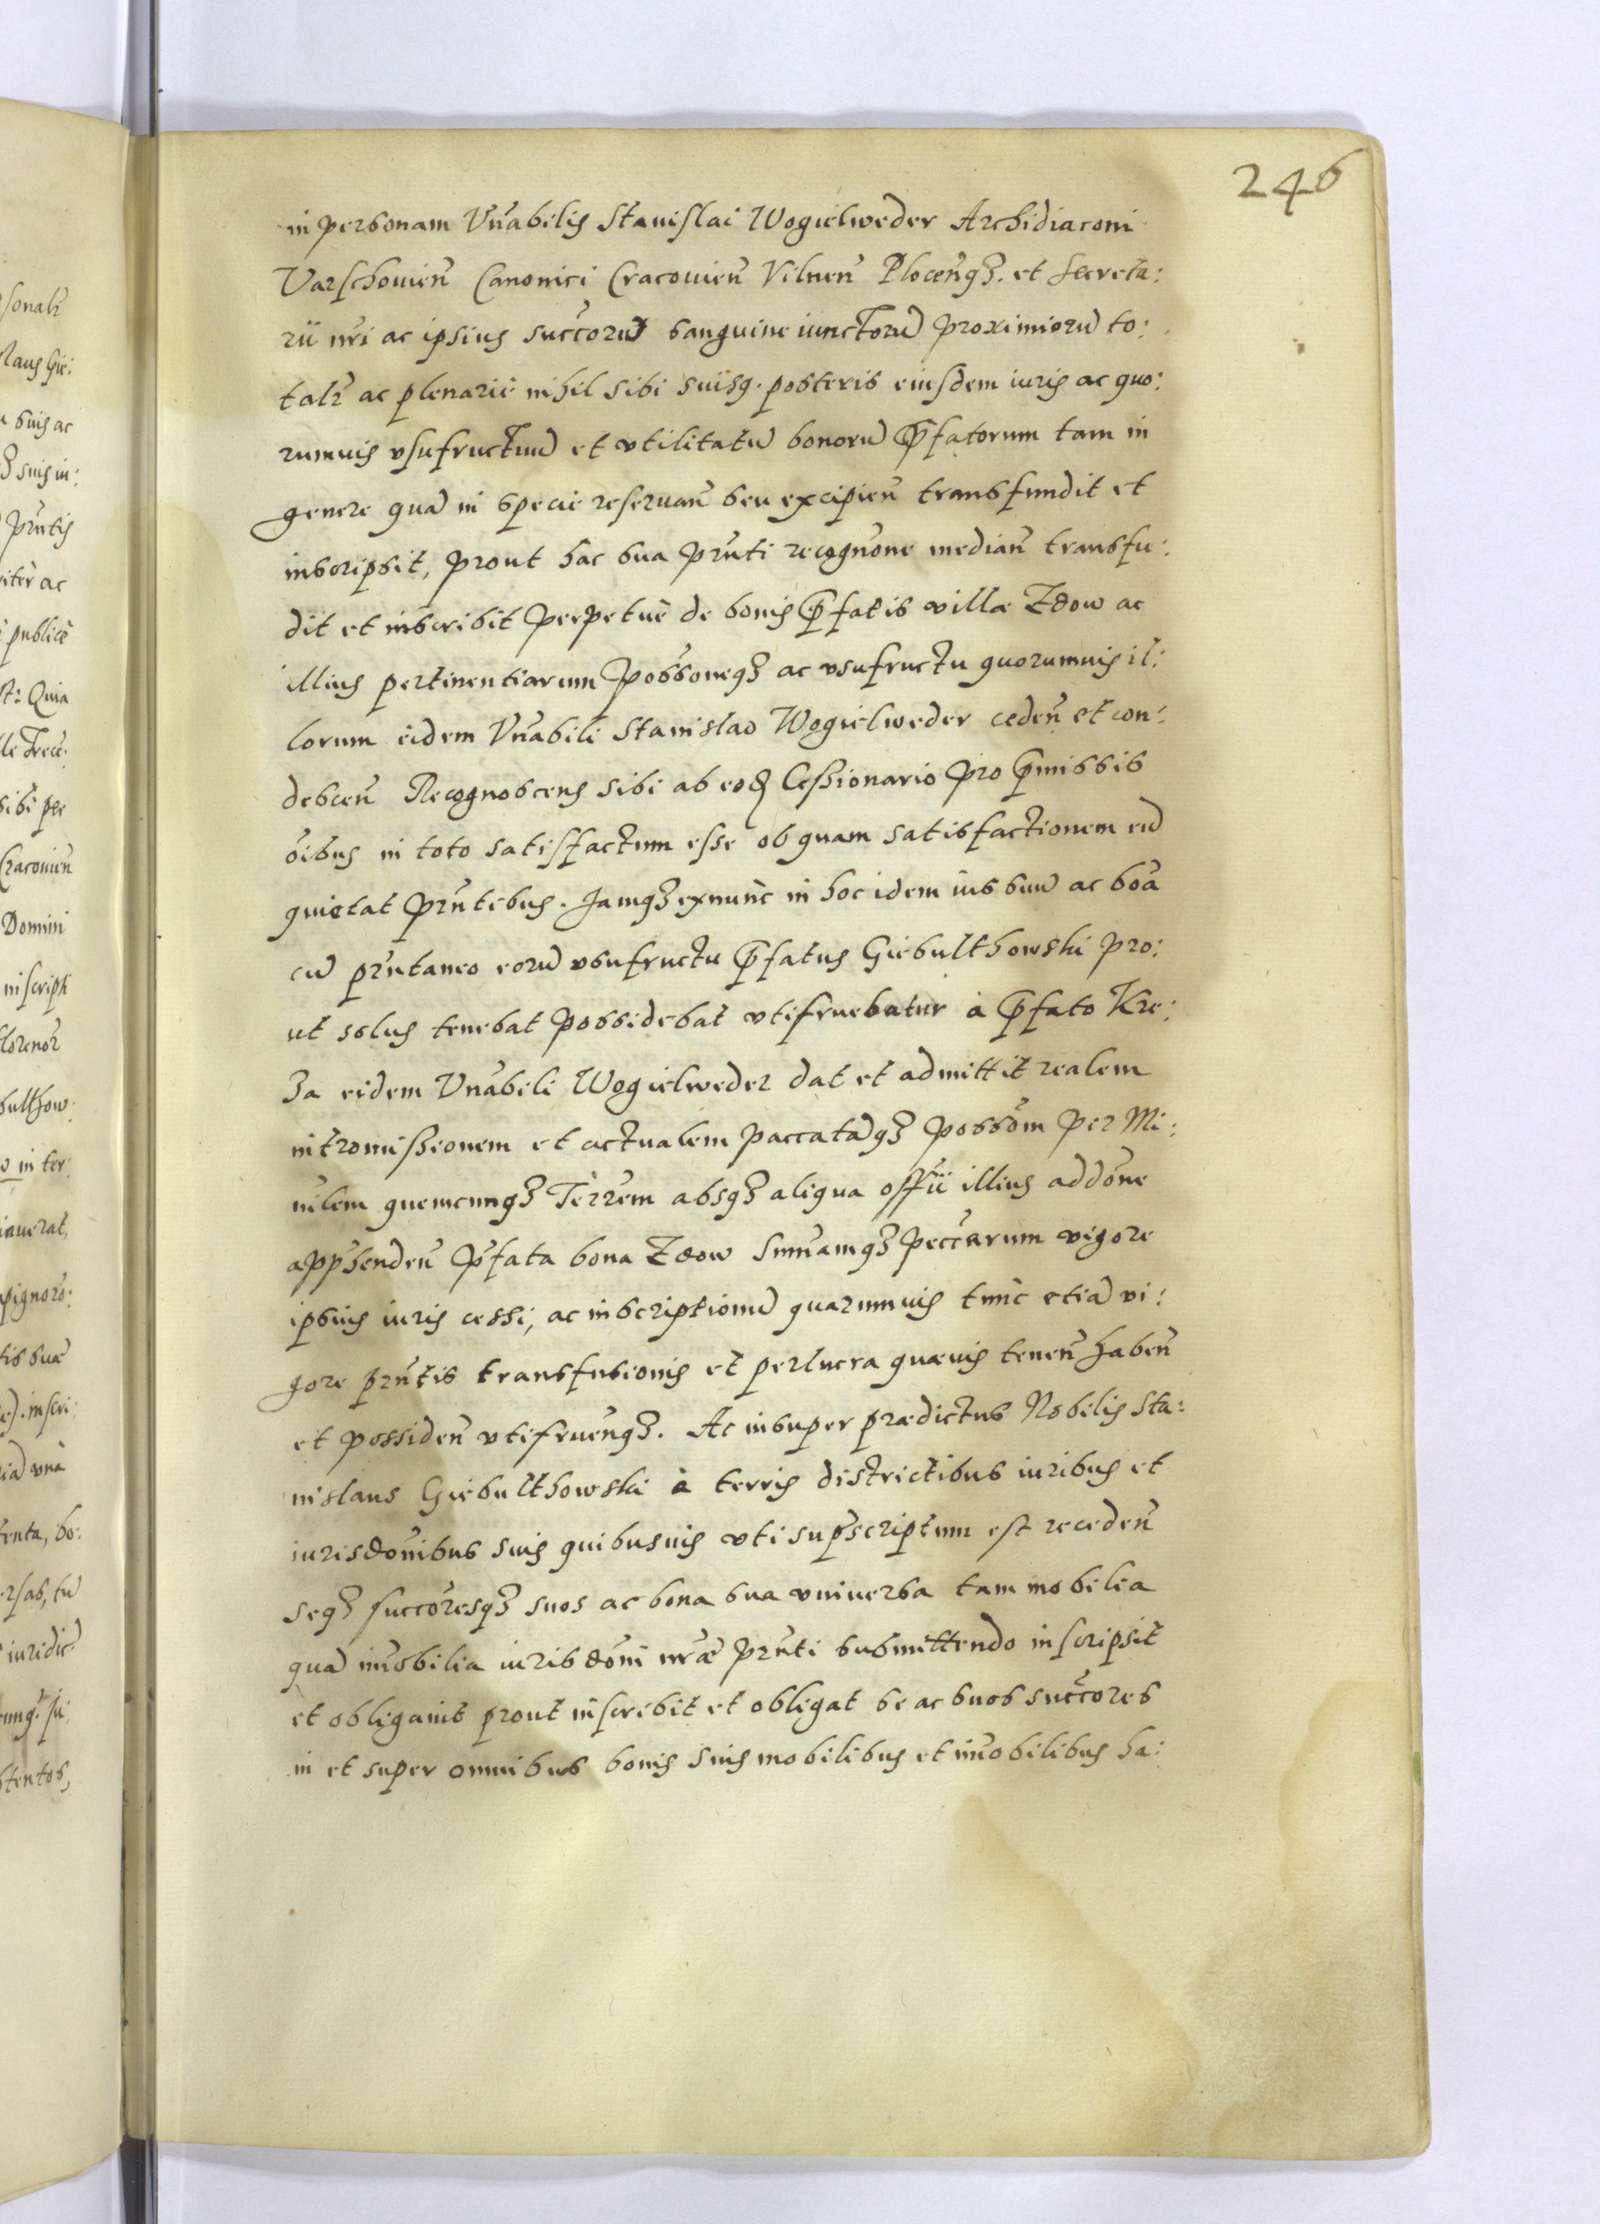 246
in personam Vnabilis Stanislai Wogielweder Archidiaconi
Varschouien Canonici Cracouien Vilnen Plocenq3. et Secreta:
rii nri ac ipsius succorū sanguine iunctorū proximiorū to:
talr ac plenariè nihil sibi suisq. posteris eiusdem iuris ac quo:
rumuis vsufructuū et vtilitatū bonorū pfatorum tam in
genere quā in specie reseruan seu excipien transfundit et
inscripsit, prout hac sua prnti recognone median transfu:
dit et inscribit perpetuè de bonis pfatis villæ Zdow ac
illius pertinentiarum possoneq3 ac vsufructu quorumuis il:
lorum eidem Vnabili Stanislao Wogielweder ceden et con:
descen Recognoscens sibi ab eod Cessionario pro pmissis
oibus in toto satisfactum esse ob quam satisfactionem eū
quietat prntibus. Jamq3 exnunc in hoc idem ius suū ac boā
cū prntaneo eorū vsufructu pfatus Giebulthowski pro:
ut solus tenebat possidebat vtifruebatur à pfato Kre:
za eidem Vnabili Wogielweder dat et admittit realem
intromissionem et actualem paccatāq3 possom per Mi:
nilem quemcunq3 Terrem absq3 aliqua offii illius addone
apphenden pfata bona Zdow summamq3 peccarum vigore
ipsius iuris cessi, ac inscriptionū quarumuis tunc etiā vi:
gore prntis transfusionis et perlucra quæuis tenen haben
et possiden vtifruenq3. Ac insuper prædictus Nobilis Sta:
nislaus Giebulthowski à terris districtibus iuribus et
iurisdonibus suis quibusuis vti supscriptum est receden
seq3 succoresq3 suos ac bona sua vniuersa tam mobilia
quā imobilia iurisdoni nræ prnti submittendo inscripsit
et obligauit prout inscribit et obligat se ac suos succores
in et super omnibus bonis suis mobilibus et imobilibus ha: